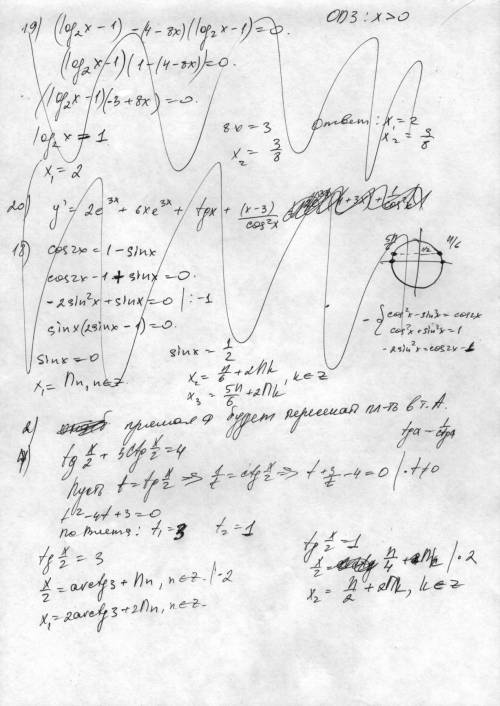 19) (log₂x-1) - (4-8x)(log₂x-1)=0. ОДЗ: x>0
(log₂x-1)(1-(4-8x))=0.
(log₂x-1)(-3+8x)=0.
log₂x=1 8x=3 Ответ: x₁=2
x₁=2 x₂=3/8 x₂=3/8
20) y'=2e^3x + 6xe^3x + tgx + (x-3)/cos²x
18) cos2x=1-sinx
cos2x-1+sinx=0.
-2sin²x+sinx=0 |:-1
sinx(2sinx-1)=0.
sinx=0 sinx=1/2
x₁=Пn, n∈z. x₂=П/6+2Пk
x₃=5П/6+2Пk, k∈z
5П/6 1/2 П/6
-{cos²x-sin²x=cos2x
cos²x+sin²x=1
-2sin²x=cos2x-1
2) прямая a будет пересекать пл-ть в т. А.
4) tg x/2 + 3ctg x/2=4
Пусть t=tg x/2 ⇒ 1/t=ctg x/2 ⇒ t+3/t-4=0 |·t≠0
t²-4t+3=0
по Виета: t₁=3 t₂=1
tg x/2=3
x/2=arctg3+Пn, n∈z. |·2
x₁=2arctg3+2Пn, n∈z.
tg x/2=1
x/2= П/4+Пk |·2
x₂=П/2+2Пk, k∈z